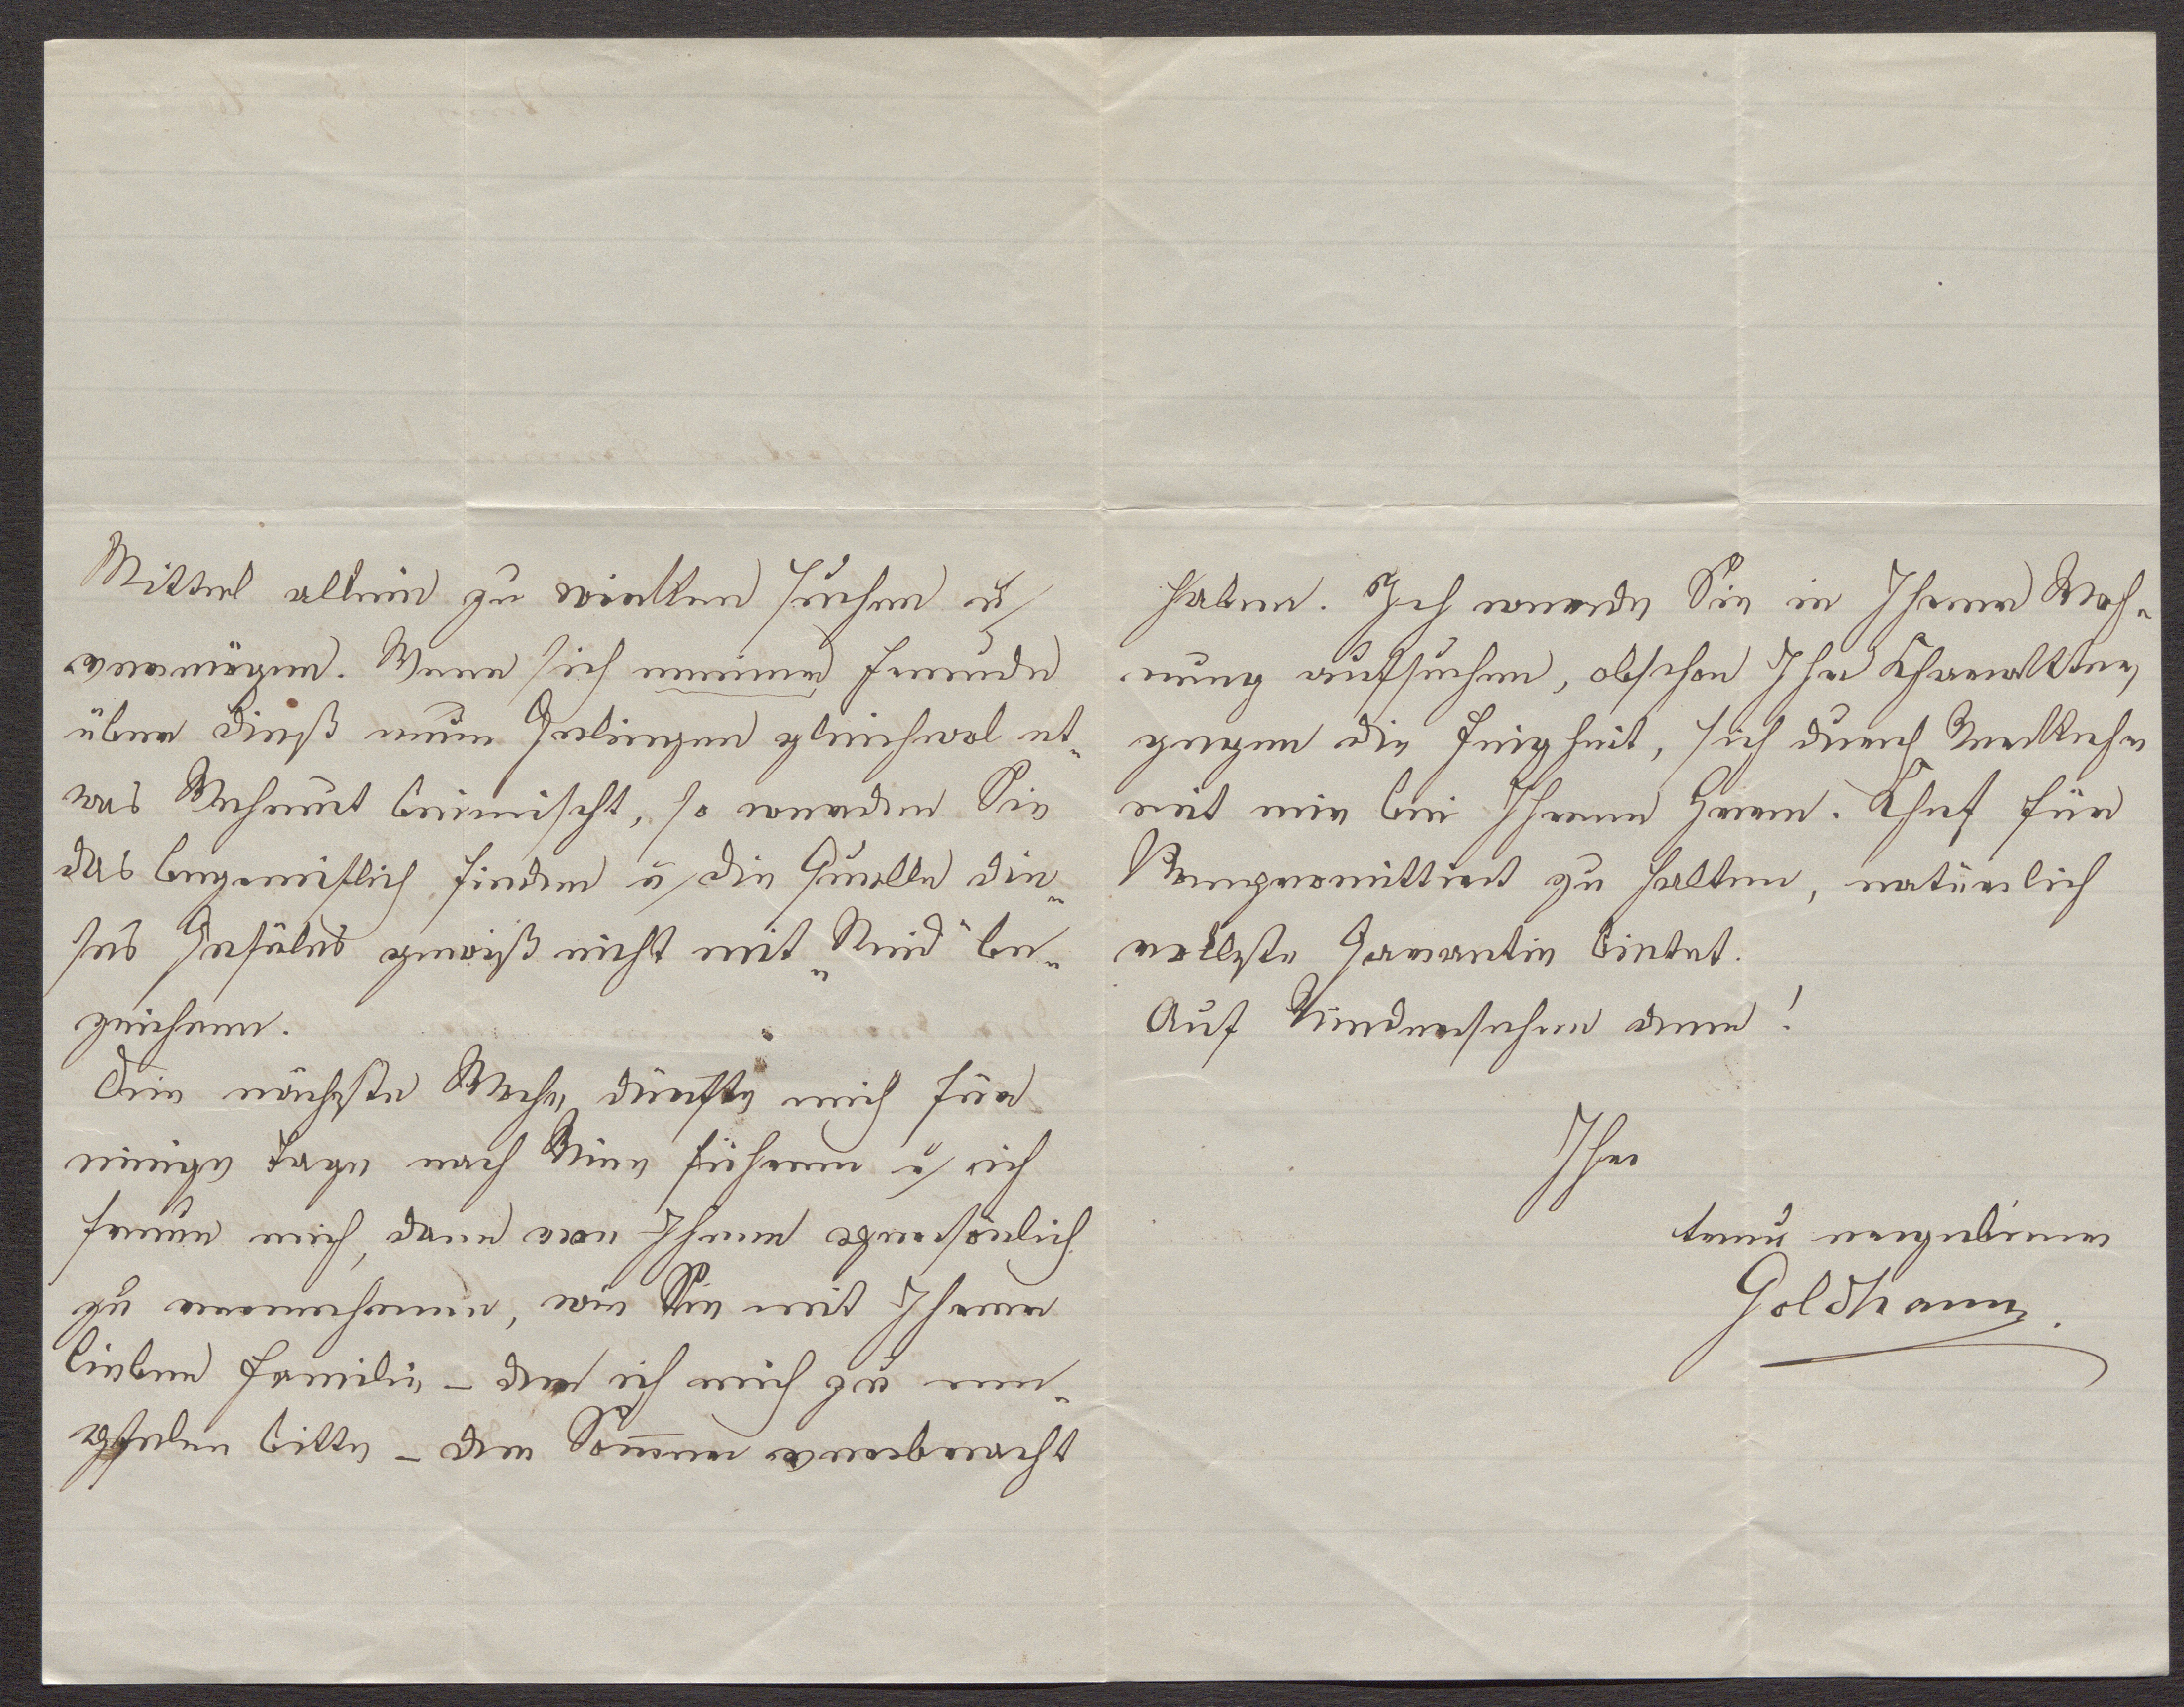 Mittel allein zu wirken suchen u
vermögen. Wenn sich meiner Freude
über dieß neue Gelingen gleichwol et-
was Wehmut beimischt, so werden Sie
das begreiflich finden u die Quelle die-
ses Gefüles gewiß nicht mit „Neid" be-
zeichnen.
Die nächste Woche dürfte mich für
einige Tage nach Wien führen u ich
freue mich, dann von Ihnen persönlich
zu vernehmen, wie Sie mit Ihrer
lieben Familie – der ich mich zu em-
pfelen bitte – den Som̅er verbracht
haben. Ich werde Sie in Ihrer Woh-
nung aufsuchen, obschon Ihr Charakter
gegen die Feigheit, sich durch Verkehr
mit mir bei Ihrem Herrn Chef für
kompromittiert zu halten, natürlich
vollste Garantie bietet.
Auf Wiedersehen denn!
Ihr
treu ergebener
Goldhann.